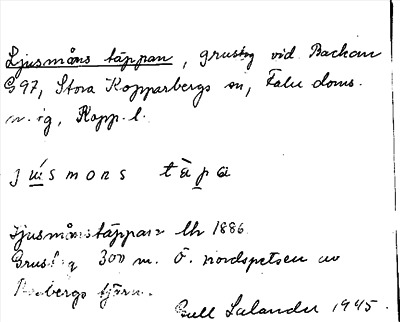 Ljusmåns täppan, grustag vid Backan
G97, Stora Kopparbergs sn, Falu doms.
Kopp. l.
j u̲s m o n s t à p a
Ljusmånstäppan lk 1886
300 m. Ö. nordspetsen av
bergs tjärn.
Gull Salander 1945.